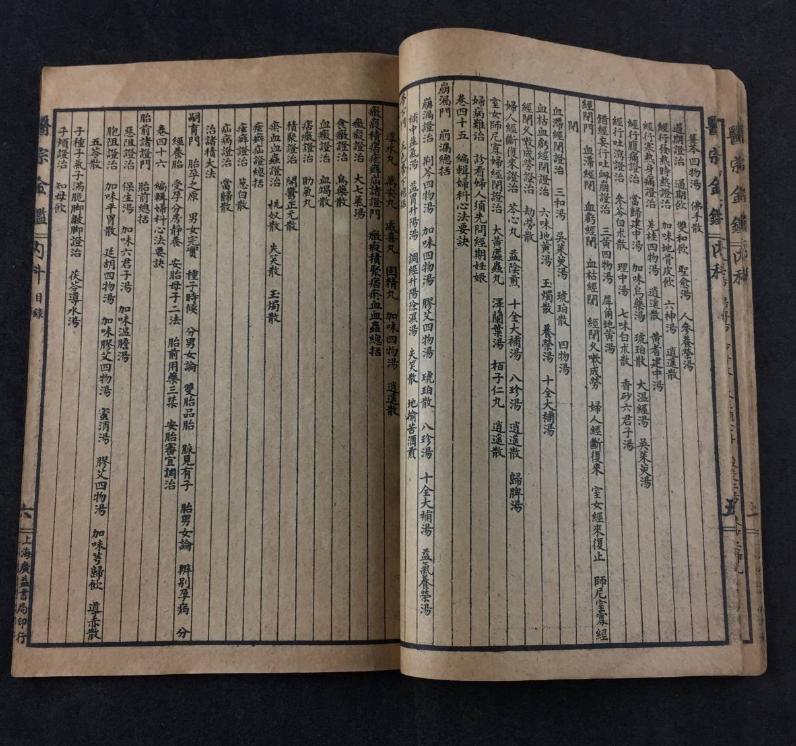 芩四物湯 佛手散
過期證治 過期飲 雙和飲 聖愈湯 人參養榮湯
經行發熱時熱證治 加味地骨皮飲 六神湯 逍遙散
經行寒熱身痛證治 羌桂四物湯 逍遙散 黃耆建中湯
經行腹痛證治 當歸建中湯 加味烏藥湯 琥珀散 大溫經湯 吳茱萸湯
經行吐瀉證治 參苓白朮散 理中湯 七味白朮散 香砂六君子湯
錯經妄行吐衄崩證治 三黃四物湯 犀角地黃湯
經閉門 血滯經閉 血虧經閉 血枯經閉 經閉久嗽成勞 婦人經斷復來 室女經來復止 師尼室寡經
閉
血滯經閉證治 三和湯 吳茱萸湯 琥珀散 四物湯
血枯血虧經閉證治 六味地黃湯 玉燭散 養榮湯 十全大補湯
經閉久嗽骨蒸勞證治 劫勞散
婦人經斷復來證治 芩心丸 益陰煎 十全大補湯 八珍湯 逍遙散 歸脾湯
室女師尼寡婦經閉證治 大黃䗪蟲丸 澤蘭葉湯 柏子仁丸 逍遙散
婦病難治 診看婦人須先問經期妊娠
卷四十五 編輯婦科心法要訣
崩漏門 崩漏總括
崩漏證治 荊芩四物湯 加味四物湯 膠艾四物湯 琥珀散 八珍湯 十全大補湯 益氣養榮湯
補中益氣湯 益胃升陽湯 調經升陽除濕湯 失笑散 地榆苦酒煎
五
導水丸 萬安丸 威喜丸 固精丸 加味四物湯 逍遙散
癥瘕積聚痞瘀血血蠱總括
癥瘕證治 大七氣湯
食癥證治 烏藥散
血癥證治 血竭散
痃癖證治 助氣丸
積聚證治 開鬱正元散
瘀血血蠱證治 桃奴散 失笑散 玉燭散
痃癖疝證總括
痃癖證治 葱白散
疝病證治 當歸散
治諸積大法
嗣育門 胎孕之原 男女完實 種子時候 分男女論 雙胎品胎 脉見有子 胎男女論 辨別孕病 分
經養胎 受孕分房靜養 安胎母子二法 胎前用藥三禁 安胎審宜調治
卷四十六 編輯婦科心法要訣
胎前諸證門 胎前總括
惡阻證治 保生湯 加味六君子湯 加味溫膽湯
胞阻證治 加味平胃散 延胡四物湯 加味膠艾四物湯 蜜消湯 膠艾四物湯 加味芎歸飲 導赤散
五苓散
子腫子氣子滿脆脚皺脚證治 茯苓導水湯
子煩證治 知母飲
醫宗金鑑 內科 目錄
六
上海廣益書局印行